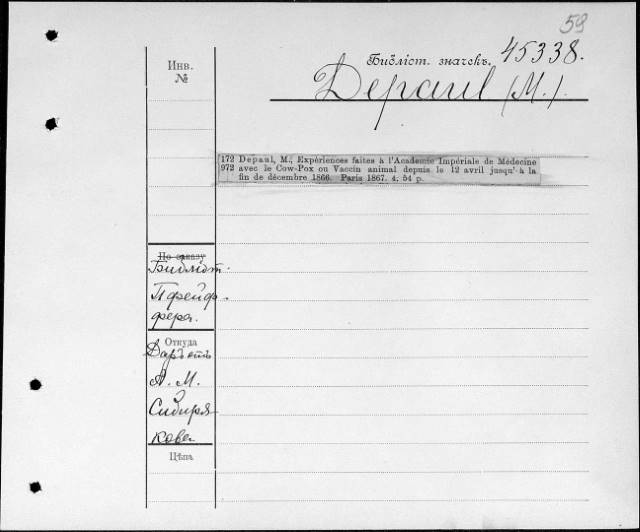 59
Инв.
№
Библіот. значокъ. 45338.
Depaul (M.).
172 Depaul, M., Expériences faites à l'Academie Impériale de Médecine
972 avec le Cow-Pox ou Vaccin animal depuis le 12 avril jusqu' à la
fin de décembre 1866. Paris 1867. 4. 54 p.
По заказу
Библіот.
Пфейф-
фера.
Откуда
Даръ отъ
А. М.
Сибиря
кова
Цѣна